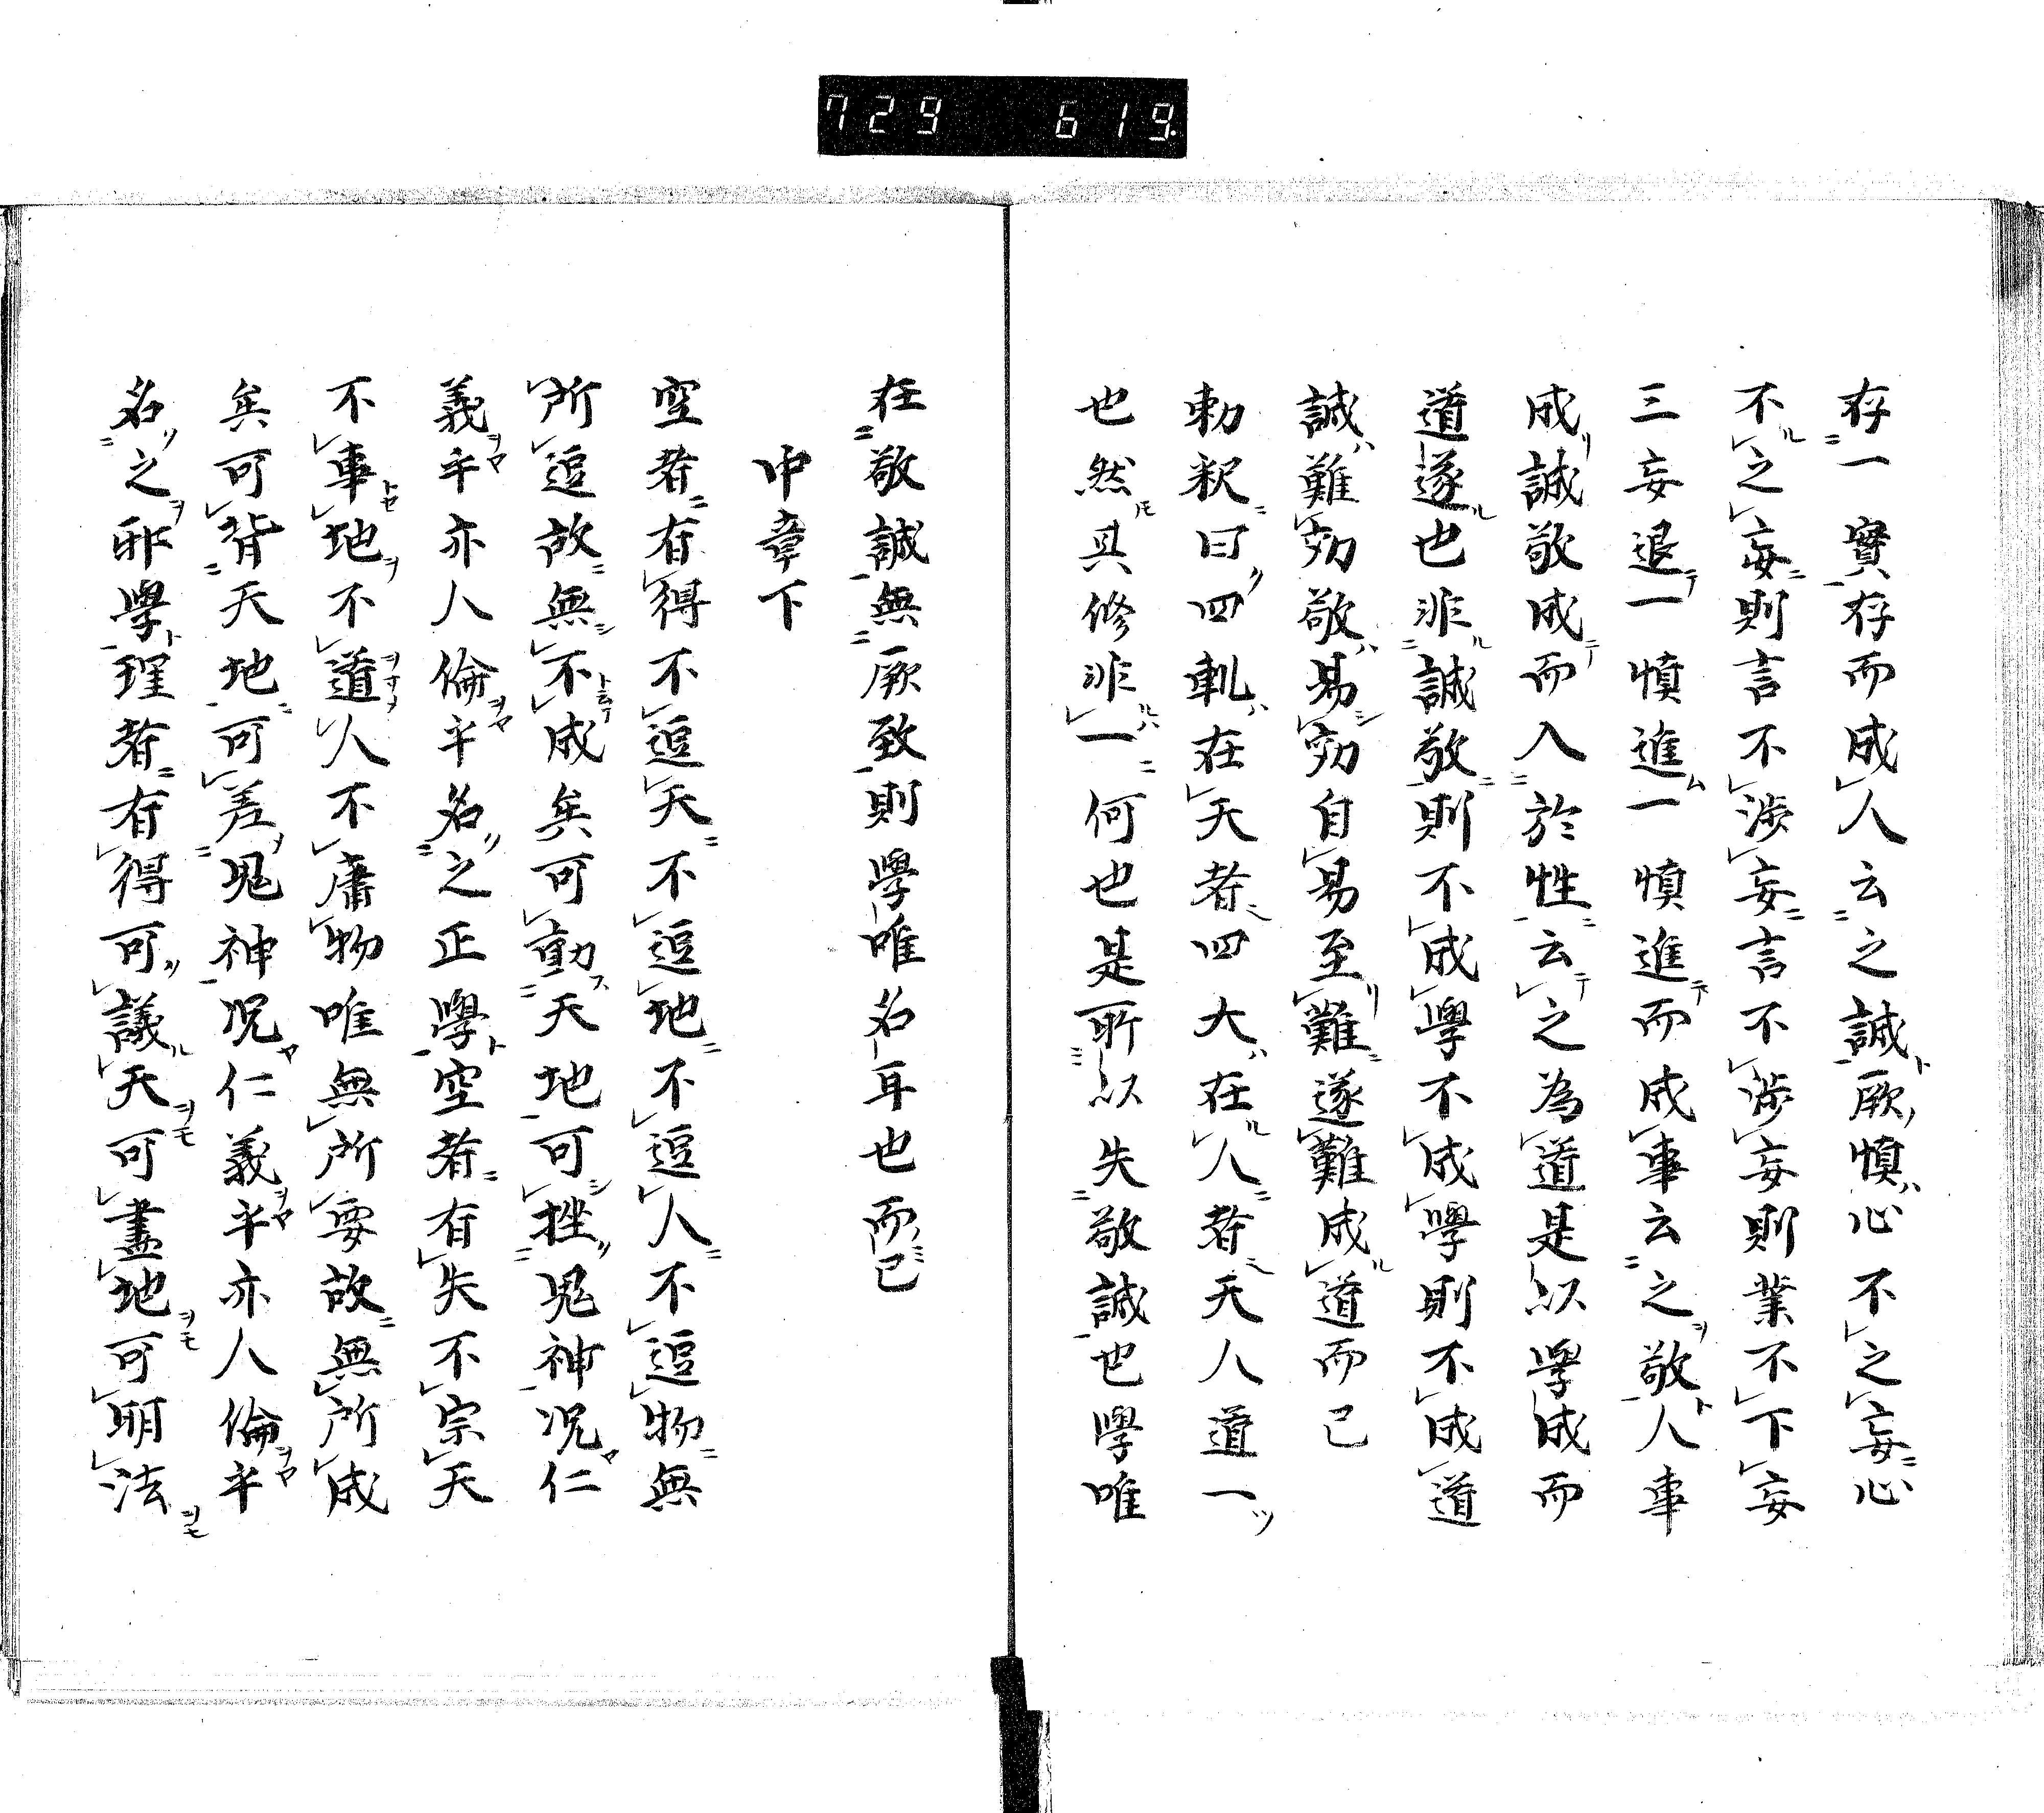 729 619.
存一實存而成人云之誠厥慎心不之妄心
不之妄則言不渉妄言不渉妄則業不下妄
三妄退一慎進一慎進而成事云之敬人事
成誠敬成而入於性云之為道是以學成而
道遂也非誠敬則不成學不成學則不成道
誠難効敬易効自易至難遂難成道而已
勅釈曰四軌在天者四大在人者天人道一
也然其修非一何也是所以失敬誠也學唯
在敬誠無厥致則學唯名耳也而已
中章下
空者有得不逗天不逗地不逗人不逗物無
所逗故無不成矣可動天地可挫鬼神况仁
義乎亦人倫乎名之正學空者有失不宗天
不事地不道人不庸物唯無所要故無所成
矣可背天地可差鬼神况仁義乎亦人倫乎
名之邪學理者有得可議天可盡地可明法